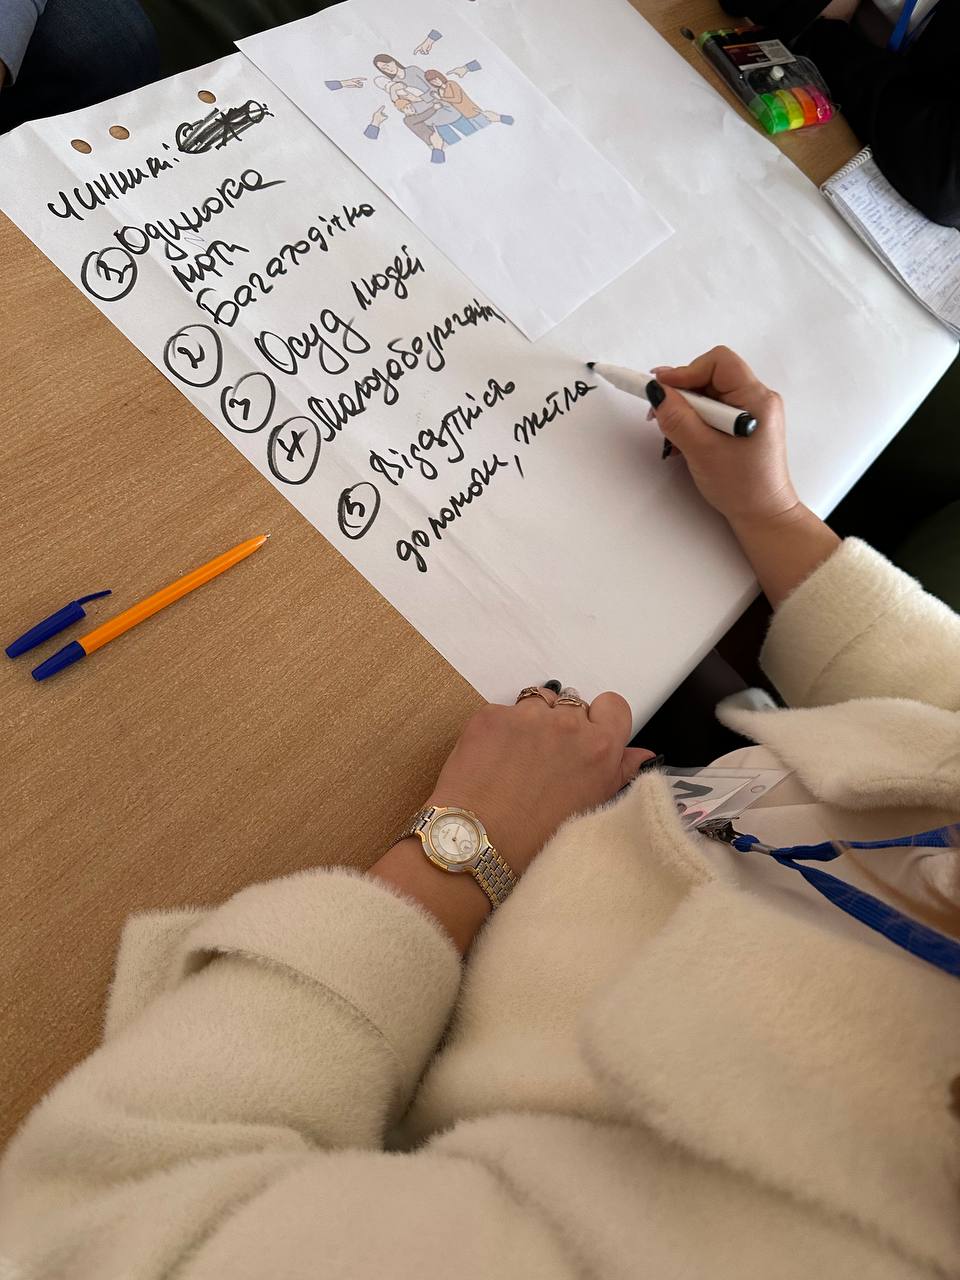 Чинники:
1 Одинока
мати
2 Багатодітна
3 Осуд людей
4 Малозабезпечені
5 Відсутність
допомоги, житла